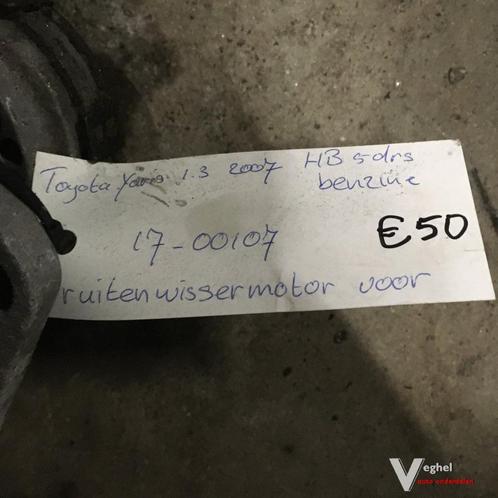 Toyota Yaris 1.3 2007 HB 5drs
benzine
17-00107
€50
ruitenwissermotor voor
Veghel
auto onderdelen